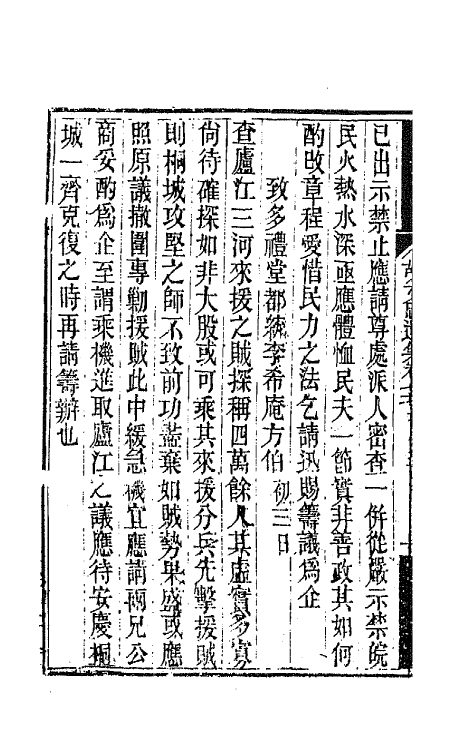 已出示禁止應請尊處派人密查一併從嚴示禁皖
民火熱水深亟應體恤民夫一節實非善政其如何
酌改章程愛惜民力之法乞請迅賜籌議爲企
致多禮堂都統李希庵方伯 初三日
查廬江三河來援之賊探稱四萬餘人其虛實多寡
尚待確探如非大股或可乘其來援分兵先擊援賊
則桐城攻堅之師不致前功盡棄如賊勢果盛或應
照原議撤圍專勦援賊此中緩急機宜應請兩兄公
商妥酌爲企至謂乘機進取廬江之議應待安慶桐
城一齊克復之時再請籌辦也